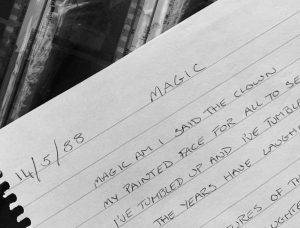 MAGIC
14/5/88
MAGIC AM I SAID THE CLOWN
MY PAINTED FACE FOR ALL TO SE
I'VE TUMBLED UP AND I'VE TUMBLE
THE YEARS HAVE LAUGH
TURES OF TH